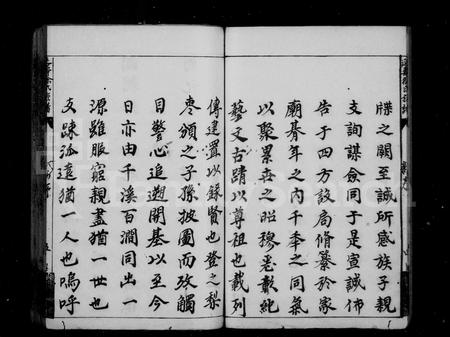 牒之闕至誠所感族子親
支詢謀僉同于是宣誠佈
告于四方設局脩纂於家
廟胥年之內千季之同氣
以聚累世之昭穆悉彰純
藝又古蹟以尊祖也載列
傳建置以錄賢也登之梨
棗頒之子孫披圖而攷觸
目警心追溯開基以至今
日亦由千溪百澗同出一
源雖服窮親盡猶一世也
支疎派遠猶一人也嗚呼